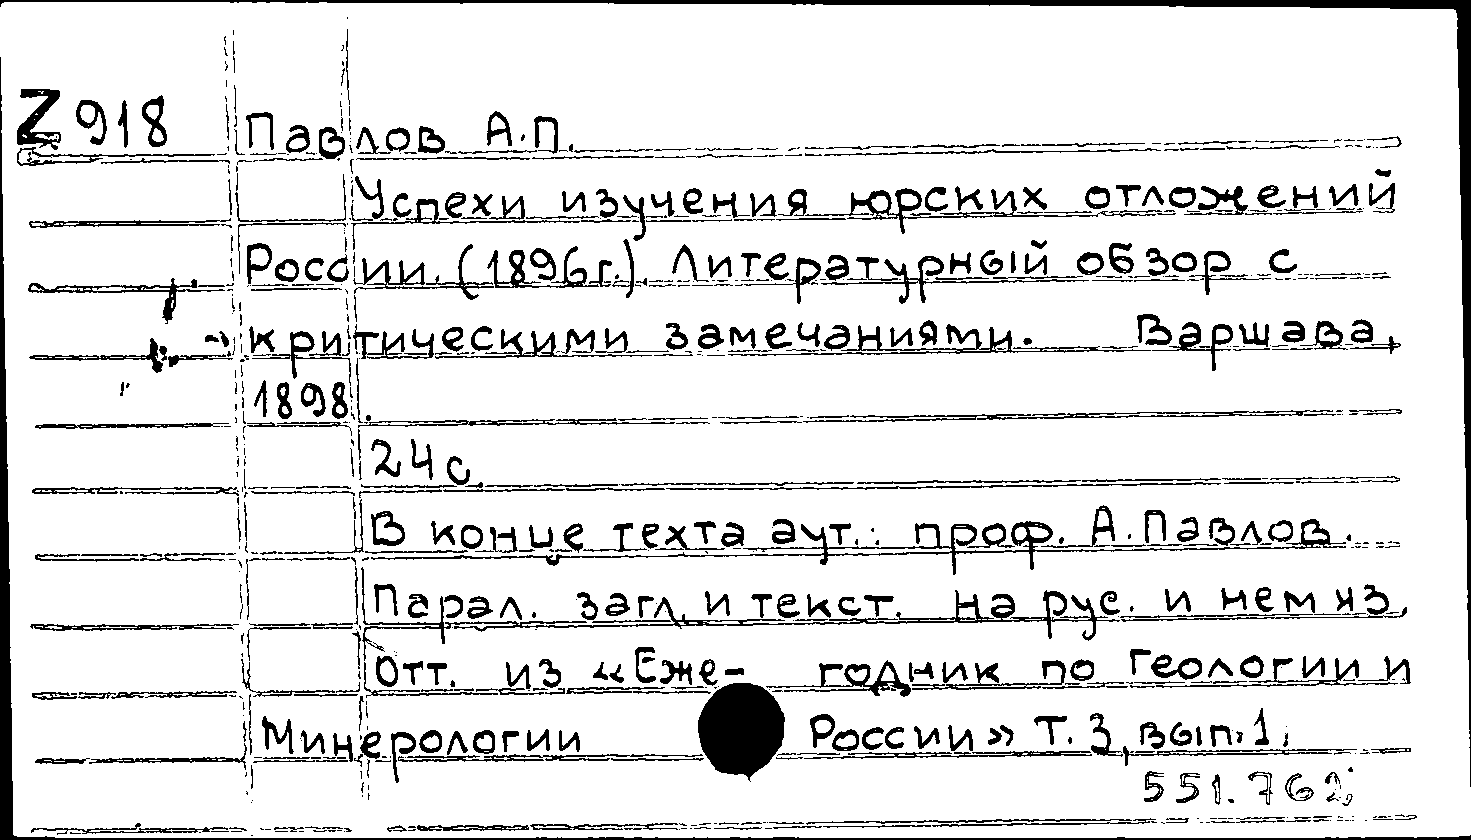 Z 918 Павлов А.П.
Успехи изучения юрских отложений
России. (1896г.). Литературный обзор с
критическими замечаниями. Варшава,
1898.
24с.
В конце техта аут.: проф. А.Павлов.
Парал. загл. и текст. на рус. и нем яз.
Отт. из «Еже- годник по Геологии и
Минерологии России» Т. 3, вып. 1.
551.762